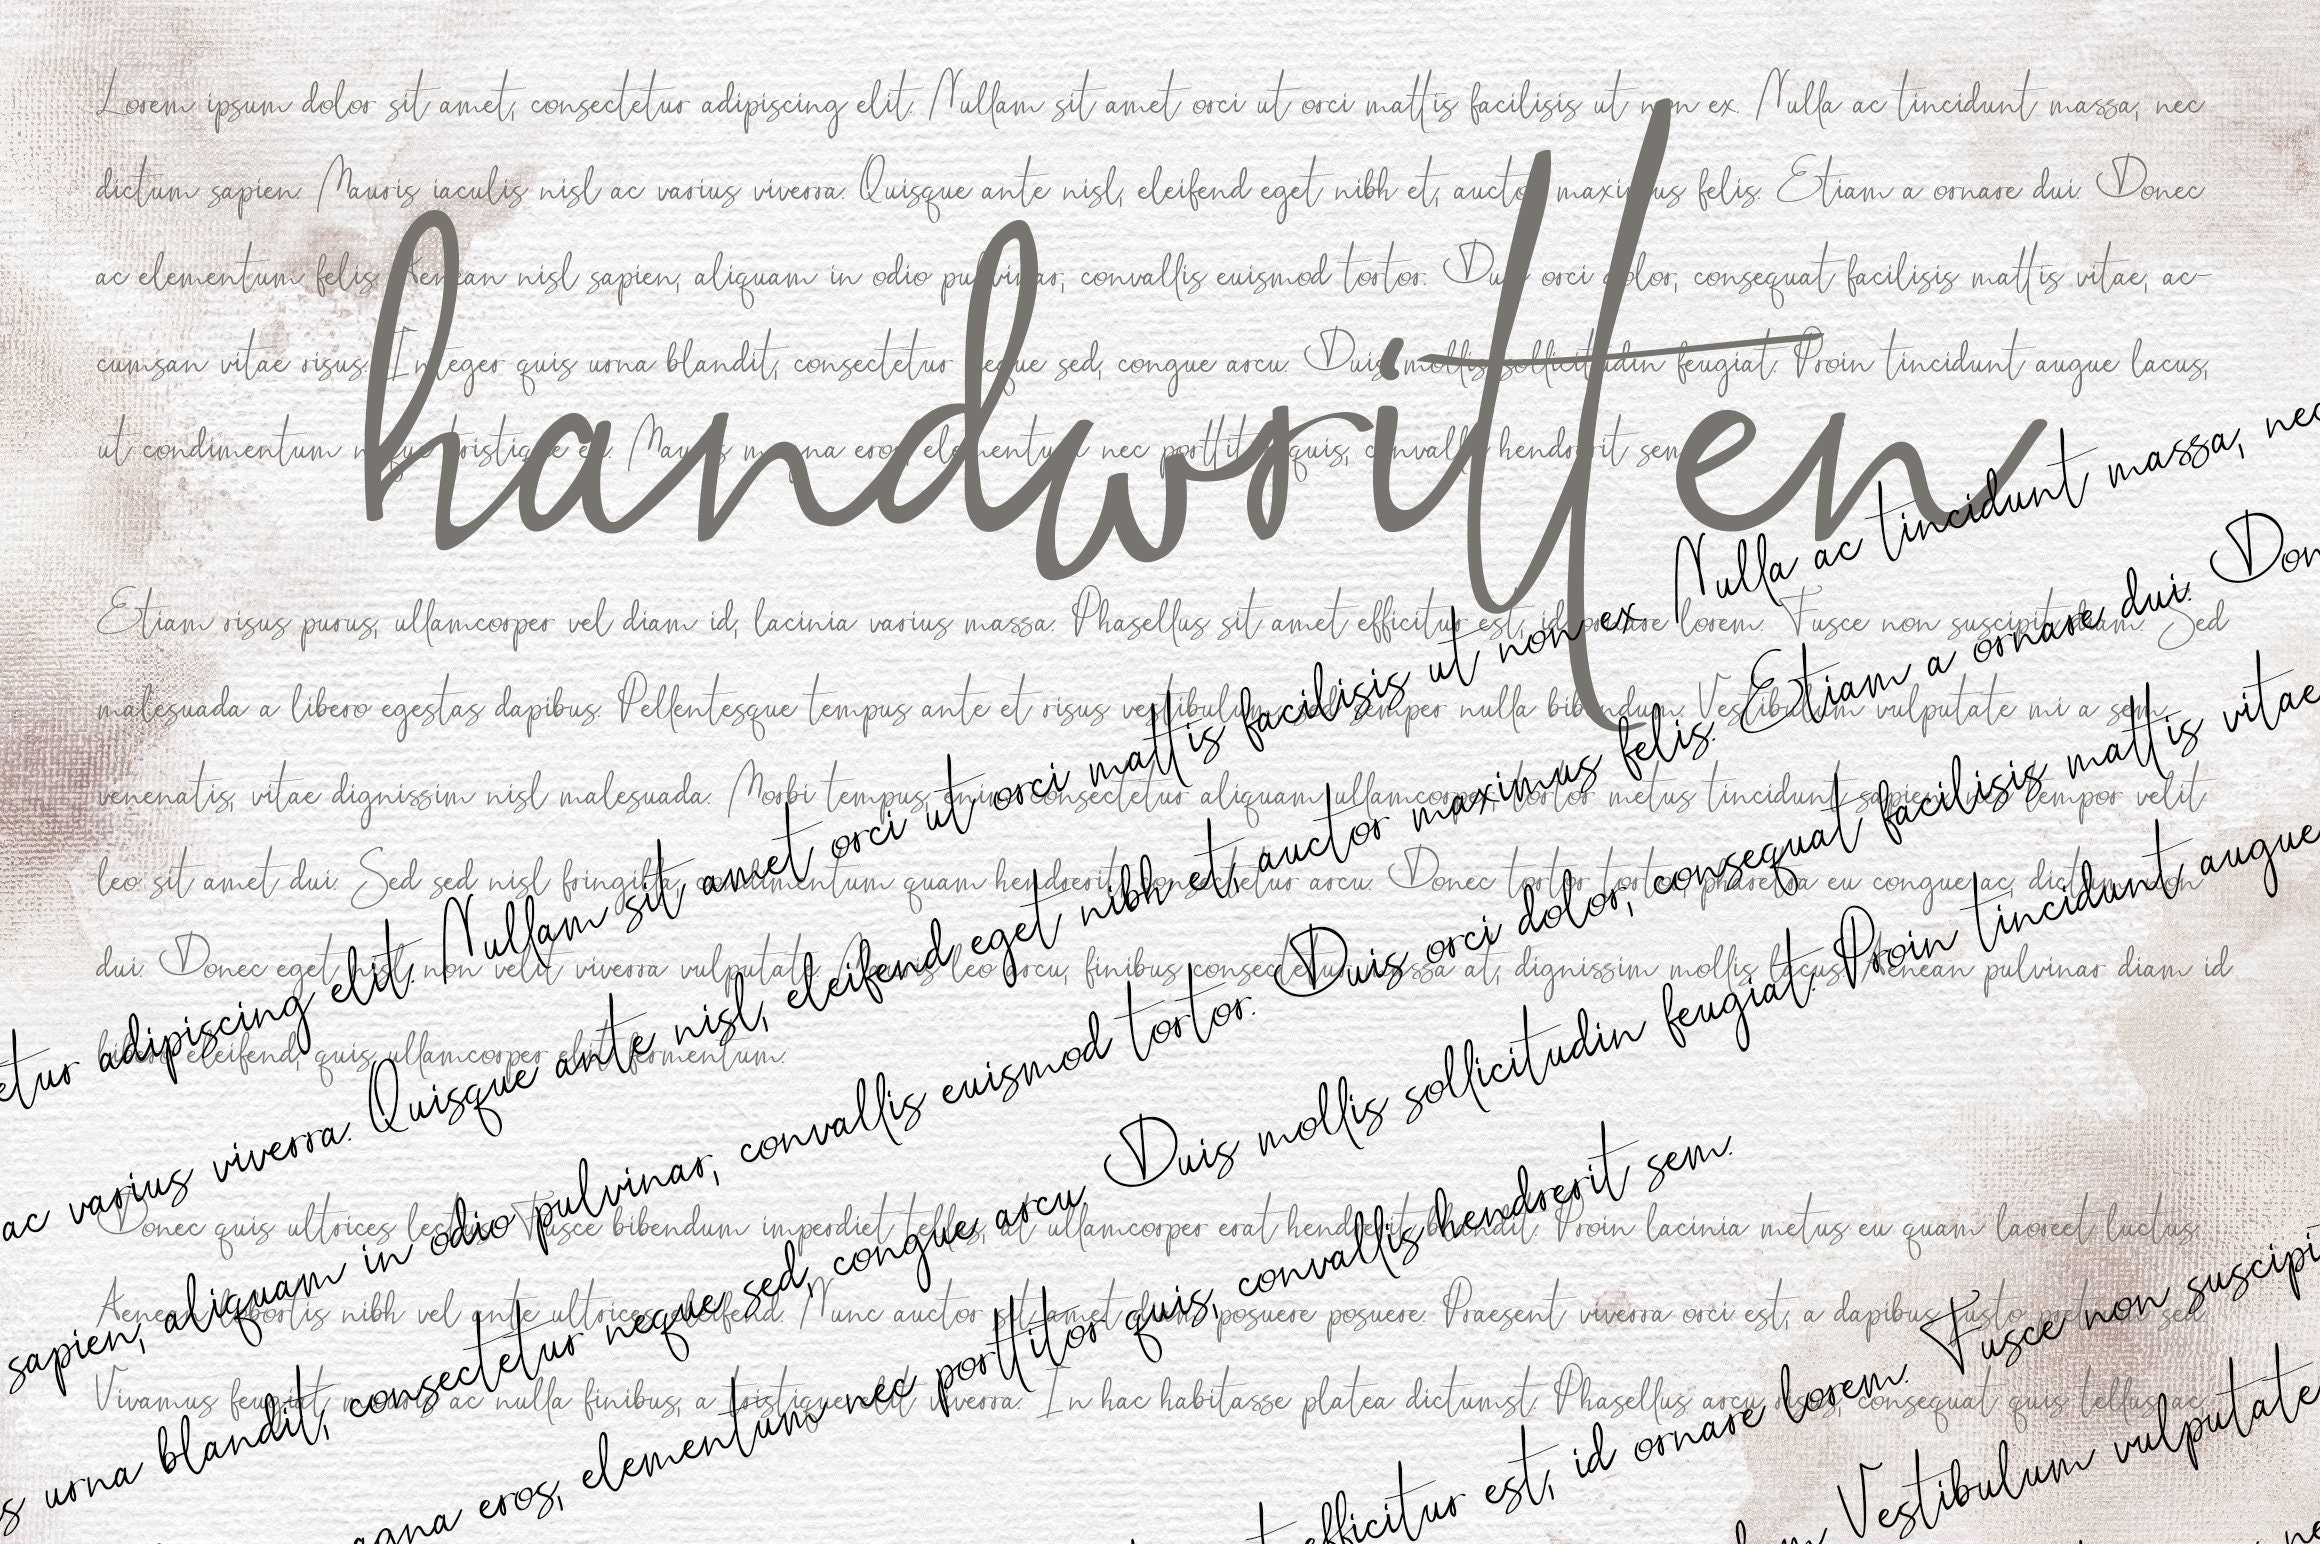 Lorem ipsum dolor sit amet, consectetur adipiscing elit. Nullam sit amet orci ut orci mattis facilisis ut non ex. Nulla ac tincidunt massa, nec
dictum sapien. Mauris iaculis nisl ac varius viverra. Quisque ante nisl, eleifend eget nibh et, auctor maximus felis. Etiam a ornare dui. Donec
ac elementum felis. Aenean nisl sapien, aliquam in odio pulvinar, convallis euismod tortor. Duis orci dolor, consequat facilisis mattis vitae, ac-
cumsan vitae risus. Integer quis urna blandit, consectetur neque sed, congue arcu. Duis mollis sollicitudin feugiat. Proin tincidunt augue lacus,
ut condimentum neque tristique eu. Mauris magna eros, elementum nec porttitor quis, convallis hendrerit sem.
handwritten
Etiam risus purus, ullamcorper vel diam id, lacinia varius massa. Phasellus sit amet efficitur est, id ornare lorem. Fusce non suscipit diam. Sed
malesuada a libero egestas dapibus. Pellentesque tempus ante et risus vestibulum, semper nulla bibendum. Vestibulum vulputate mi a sem
venenatis, vitae dignissim nisl malesuada. Morbi tempus, enim consectetur aliquam ullamcorper, tortor metus tincidunt sapien, tempor velit
leo sit amet dui. Sed sed nisl fringilla, condimentum quam hendrerit, consectetur arcu. Donec tortor tortor, pharetra eu congue ac, dictum non
dui. Donec eget nisl non velit viverra vulputate. leo arcu, finibus consectetur massa at, dignissim mollis lacus. Aenean pulvinar diam id
libero eleifend, quis ullamcorper elit fermentum.
Donec quis ultrices lectus. Fusce bibendum imperdiet tellus, at ullamcorper erat hendrerit blandit. Proin lacinia metus eu quam laoreet luctus.
Aenean lobortis nibh vel ante ultrices eleifend. Nunc auctor sit amet posuere posuere. Praesent viverra orci est, a dapibus justo pretium sed.
Vivamus feugiat mauris ac nulla finibus, a tristique elit viverra. In hac habitasse platea dictumst. Phasellus arcu risus, consequat quis tellus ac
etur adipiscing elit. Nullam sit amet orci ut orci mattis facilisis ut non ex. Nulla ac tincidunt massa, nec
ac varius viverra. Quisque ante nisl, eleifend eget nibh et, auctor maximus felis. Etiam a ornare dui. Don
sapien, aliquam in odio pulvinar, convallis euismod tortor. Duis orci dolor, consequat facilisis mattis vitae
s urna blandit, consectetur neque sed, congue arcu. Duis mollis sollicitudin feugiat. Proin tincidunt augue
agna eros, elementum nec porttitor quis, convallis hendrerit sem.
t efficitur est, id ornare lorem. Fusce non suscipi
Vestibulum vulputate